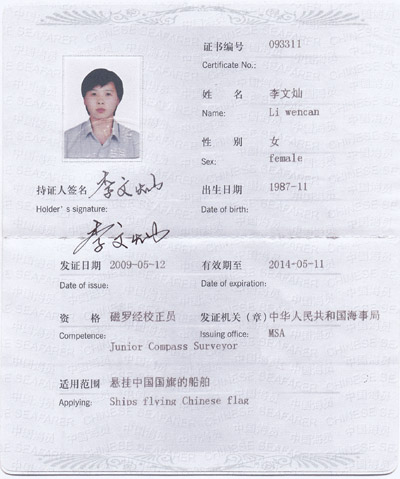 证书编号 093311
Certificate No.:
姓 名 李文灿
Name: Li wencan
性 别 女
Sex: female
持证人签名 李文灿 出生日期 1987-11
Holder's signature: Date of birth:
李文灿
发证日期 2009-05-12 有效期至 2014-05-11
Date of issue: Date of expiration:
资 格 磁罗经校正员 发证机关(章)中华人民共和国海事局
Competence: Issuing office: MSA
Junior Compass Surveyor
适用范围 悬挂中国国旗的船舶
Applying: Ships flying Chinese flag